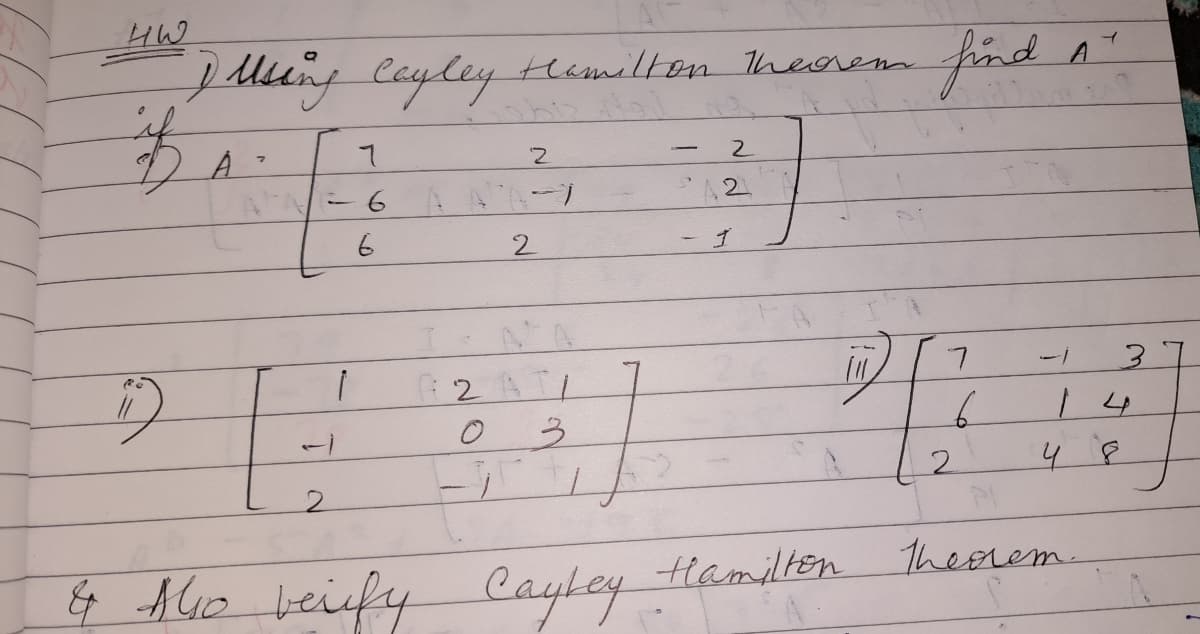 HW
1) Using Cayley Hamilton Theorem find A⁻¹
if
i) A = [ 7 2 - 2
- 6 -1 2
6 2 - 1 ]
ii) [ 1 2 1
-1 0 3
2 -1 1 ]
iii) [ 7 -1 3
6 1 4
2 4 8 ]
& Also verify Cayley Hamilton Theorem.